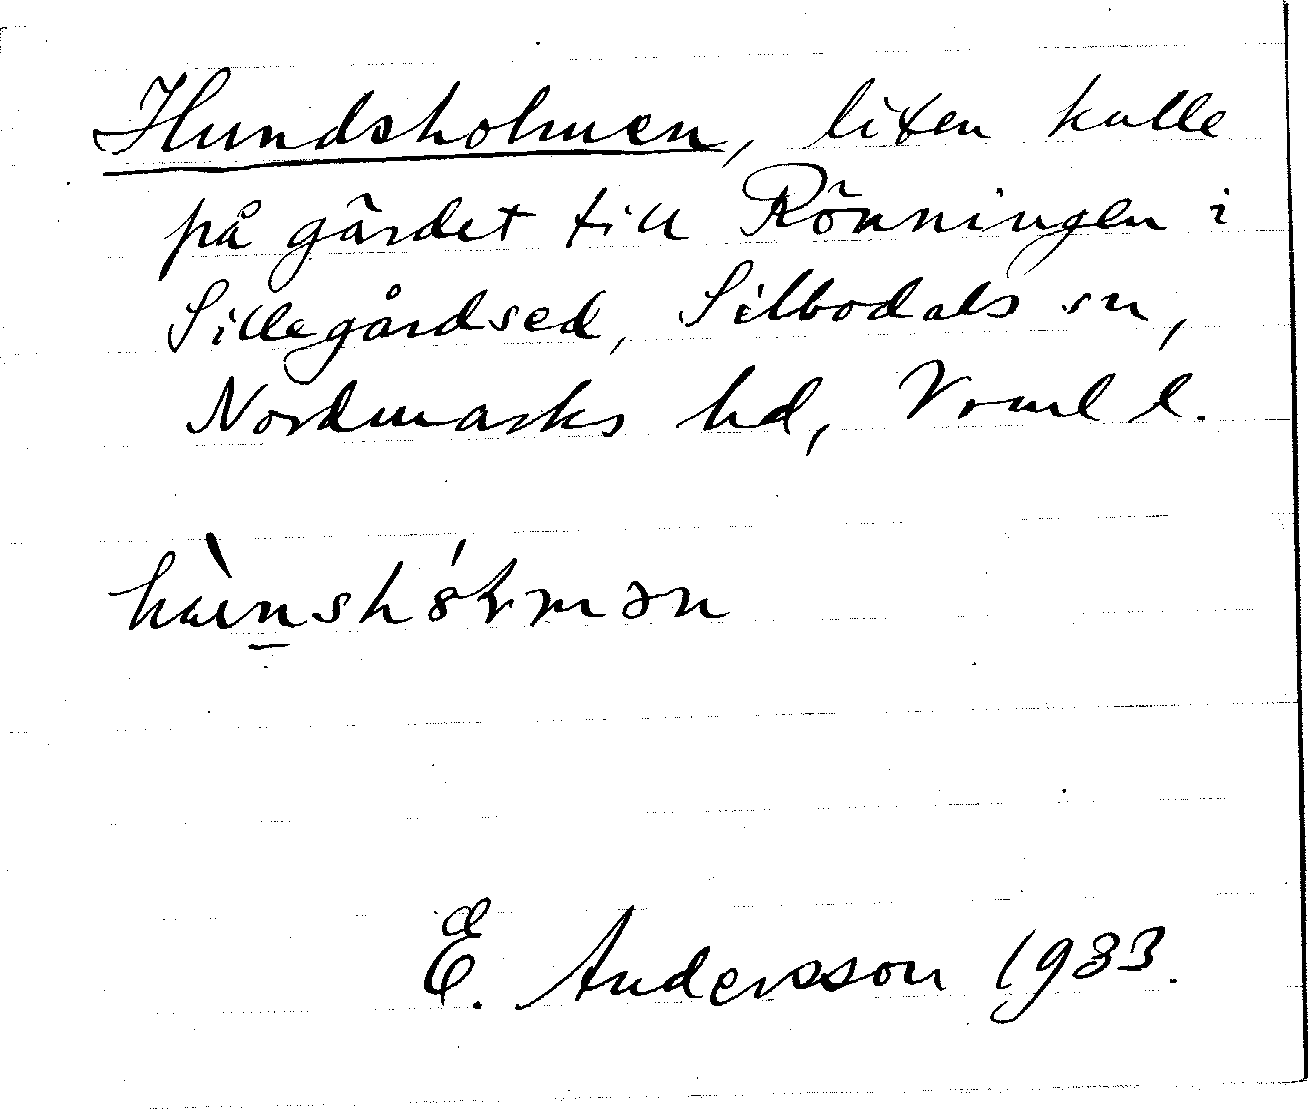 Hundsholmen, liten kulle
på gärdet till Rönningen i
Sillegårdsed, Silbodals sn,
Nordmarks hd, Vrml l.
E. Andersson 1933.